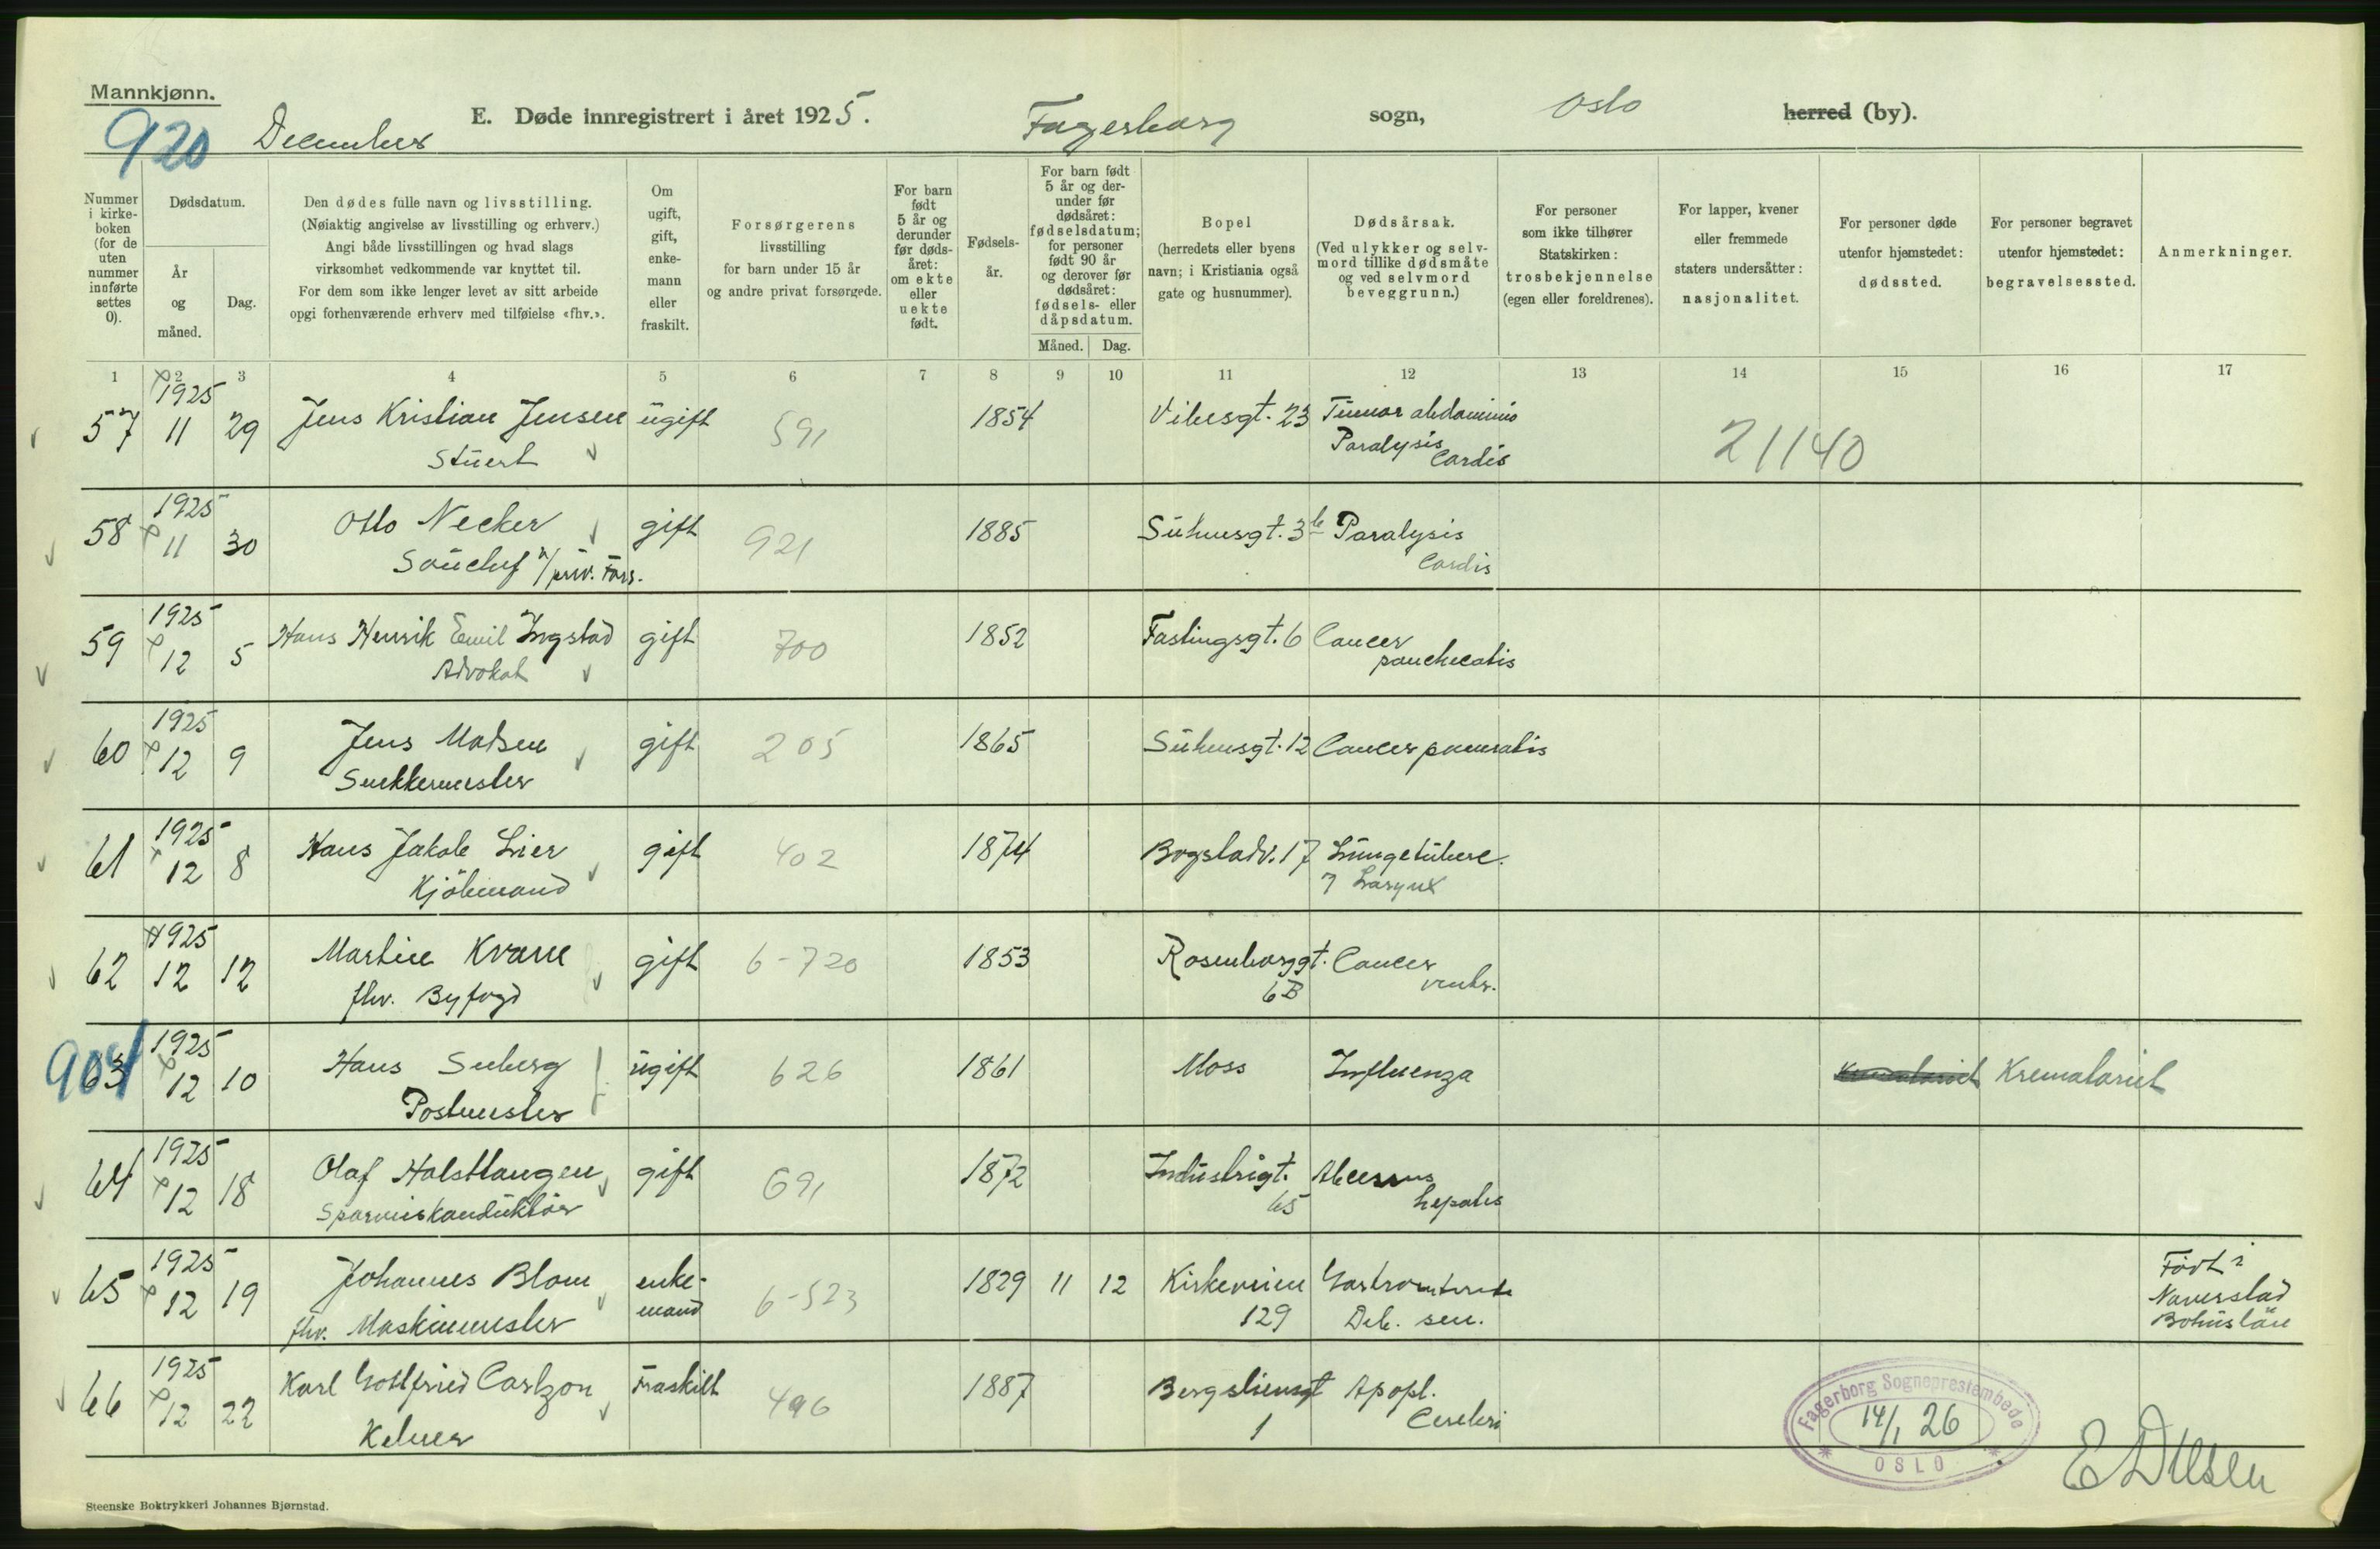 Mannkjønn.
E. Døde innregistrert i året 1925.
Fagerborg sogn,
Oslo
herred (by).
920
December
Nummer i kirke- boken (for de uten nummer innførte settes 0).
Dødsdatum.
År og måned.
Dag.
Den dødes fulle navn og livsstilling.
(Nøiaktig angivelse av livsstilling og erhverv.)
Angi både livsstillingen og hvad slags
virksomhet vedkommende var knyttet til.
For dem som ikke lenger levet av sitt arbeide
opgi forhenværende erhverv med tilføielse «fhv.».
Om ugift, gift, enke- mann eller fraskilt.
Forsørgerens
livsstilling
for barn under 15 år
og andre privat forsørgede.
For barn født 5 år og derunder før døds- året: om ekte eller uekte født.
Fødsels- år.
For barn født 5 år og der- under før dødsåret: fødselsdatum; for personer født 90 år og derover før dødsåret: fødsels- eller dåpsdatum.
Måned.
Dag.
Bopel
(herredets eller byens
navn; i Kristiania også
gate og husnummer).
Dødsårsak.
(Ved ulykker og selv-
mord tillike dødsmåte
og ved selvmord
beveggrunn.)
For personer
som ikke tilhører
Statskirken:
trosbekjennelse
(egen eller foreldrenes).
For lapper, kvener
eller fremmede
staters undersåtter:
nasjonalitet.
For personer døde
utenfor hjemstedet:
dødssted.
For personer begravet
utenfor hjemstedet:
begravelsessted.
Anmerkninger.
1 2 3 4 5 6 7 8 9 10 11 12 13 14 15 16 17
1925
57 11 29 Jens Kristian Jensen ugift 591 1854 Vibesgt. 23 Tumor abdominis
Stuert Paralysis Cordis 21140
1925
58 11 30 Otto Necker gift 921 1885 Suhmsgt. 3b Paralysis
priv. Fors. Cordis
1925
59 12 5 Hans Henrik Emil Ingstad gift 700 1852 Fastingsgt. 6 Cancer
Advokat
1925
60 12 9 Jens Madsen gift 205 1865 Suhmsgt. 12 Cancer
Snekkermester
1925
61 12 8 Hans Jakob Lier gift 402 1874 Bogstadv. 17 Lungetuberc.
Kjöbmand Larynx
1925
62 12 12 Martin Kvam gift 6-720 1853 Rosenborggt. Cancer
fhv. Byfogd 6B ventr.
904
1925
63 12 10 Hans Seeberg ugift 626 1861 Moss Influenza Krematoriet Krematoriet
Postmester
1925
64 12 18 Olaf Holstlangen gift 691 1872 Industrigt. Abcessus
Sporveiskonduktör 65 hepatis
1925
65 12 19 Johannes Blom enke- 6-523 1829 11 12 Kirkeveien Gastroenterit
fhv. Maskinmester mand 129 Deb. sen.
Födt i
Naverstad
Bohuslän
1925
66 12 22 Karl Gottfried Carlzon Fraskilt 496 1887 Bergsliensgt Apopl.
Kelner 1 Cerebri
Fagerborg Sogneprestembede
14/1 26
OSLO
Steenske Boktrykkeri Johannes Bjørnstad.